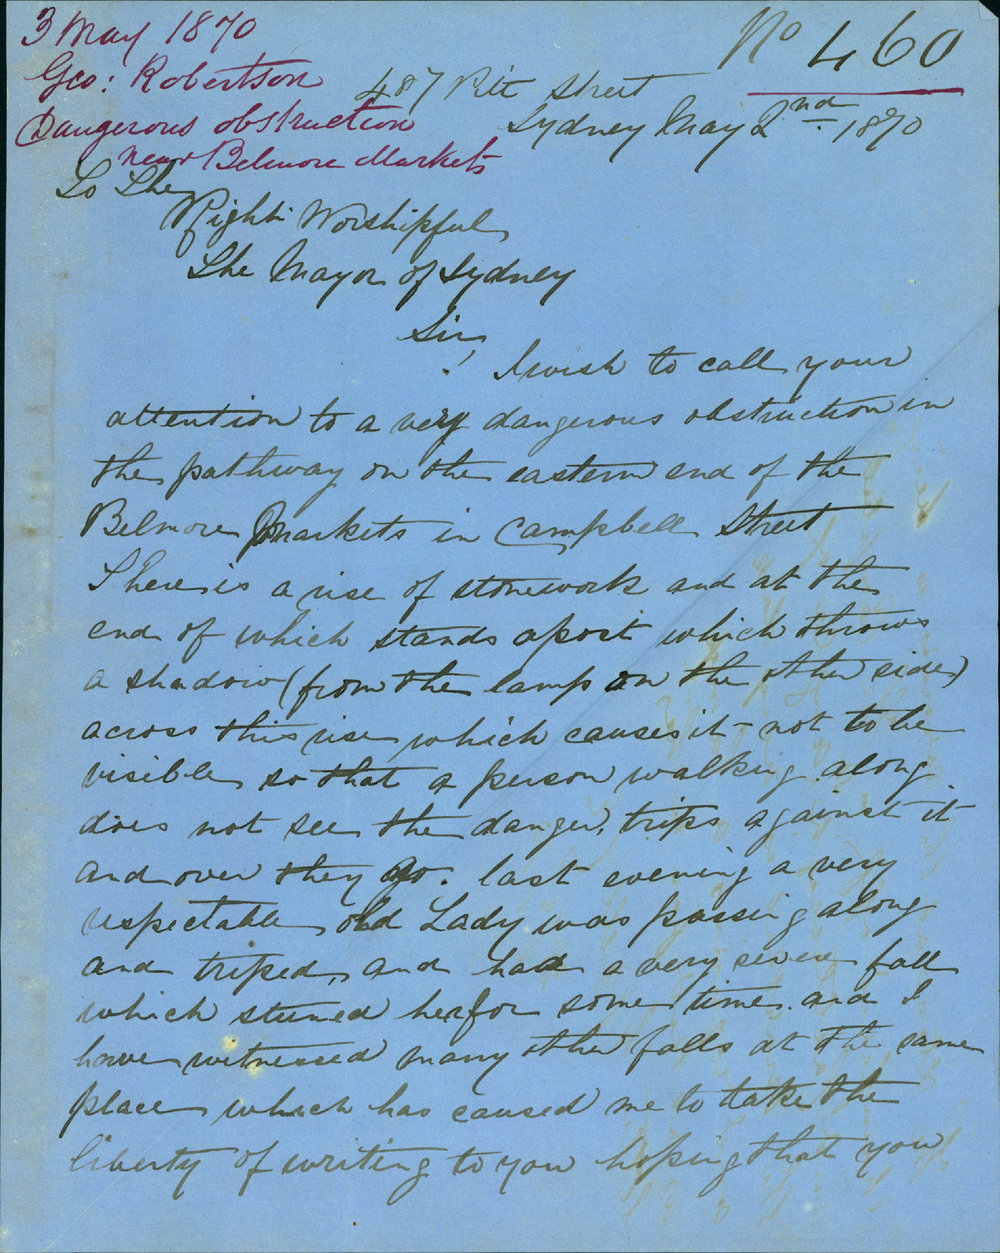 3 May 1870
Geo: Robertson
Dangerous obstruction
near Belmore Markets
No 460
487 Pitt Street
Sydney May 2nd 1870
To The
Right Worshipful
The Mayor of Sydney
Sir,
I wish to call your
attention to a very dangerous obstruction in
the pathway on the eastern end of the
Belmore Markets in Campbell Street
There is a rise of stonework and at the
end of which stands a post which throws
a shadow (from the lamp on the other side)
across this rise which causes it not to be
visible so that a person walking along
does not see the danger, trips against it
and over they go. last evening a very
respectable old Lady was passing along
and triped, and had a very severe fall
which stuned her for some time. and I
have witnessed many other falls at the same
place which has caused me to take the
liberty of writing to you hoping that you